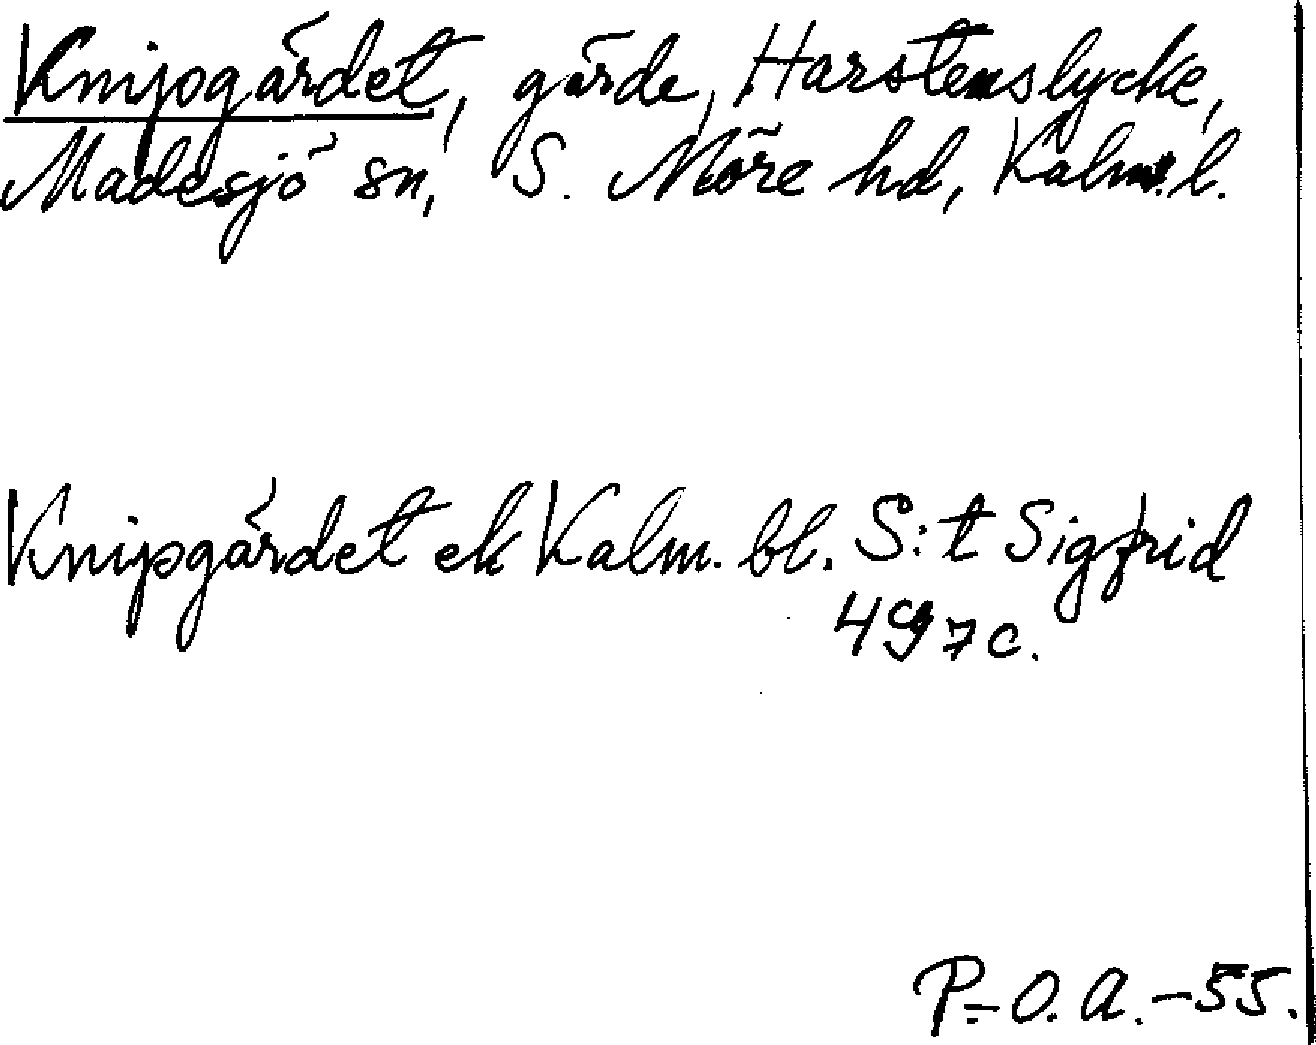 Knipgärdet, gärde, Harstenslycke,
Madesjö sn, S. Möre hd, Kalm. l.
Knipgärdet ek Kalm. bl. S:t Sigfrid
497c.
P.-O. A. -55.